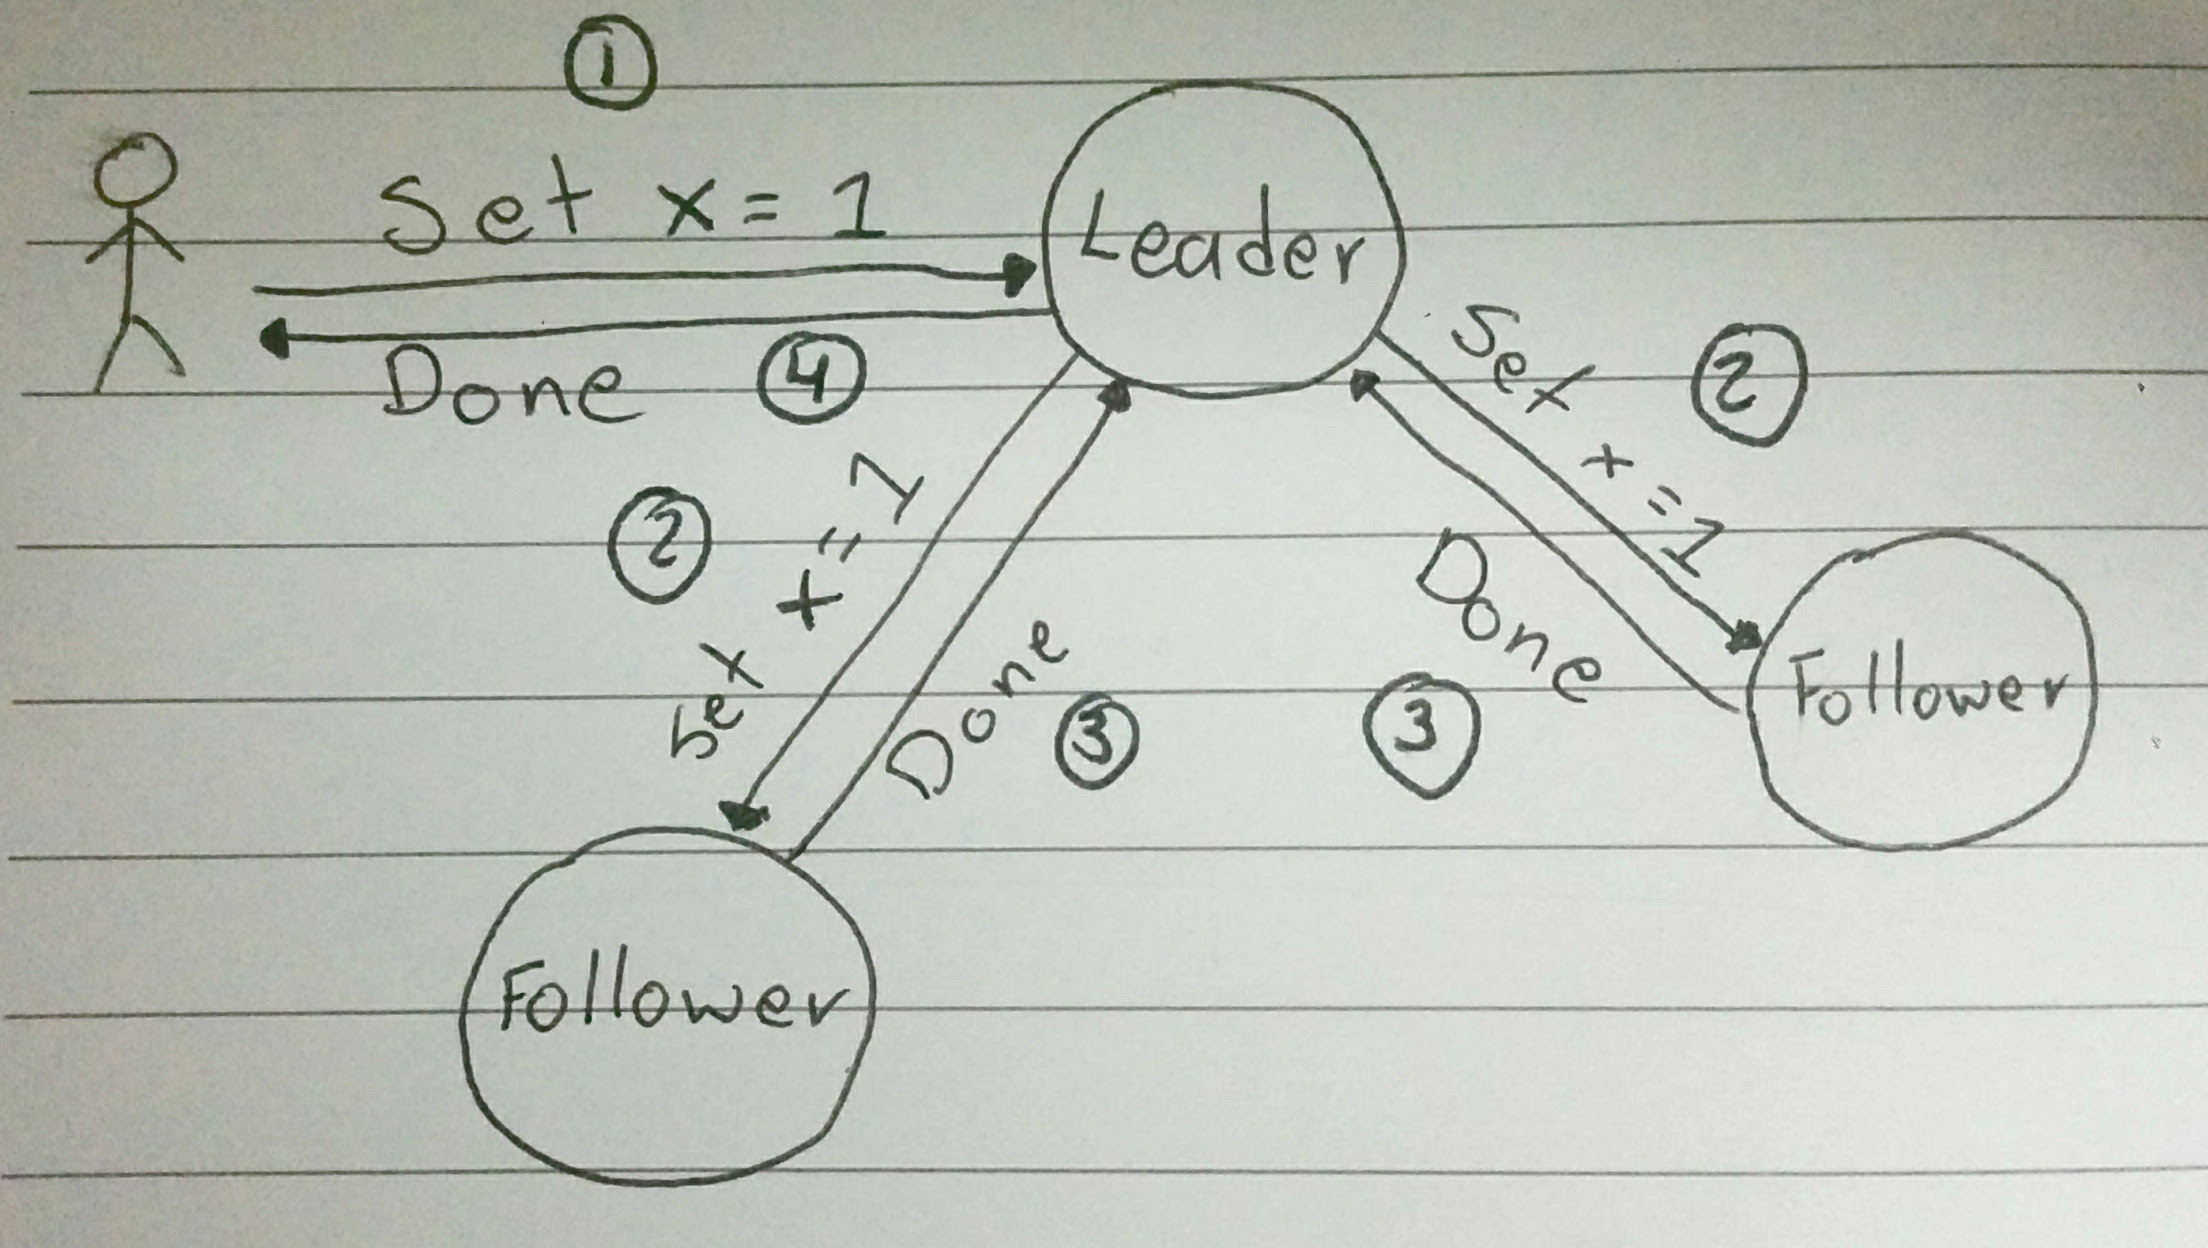 1
Set x = 1
Leader
Done
4
Set x = 1
2
2
Set x = 1
Done
3
Done
3
Follower
Follower